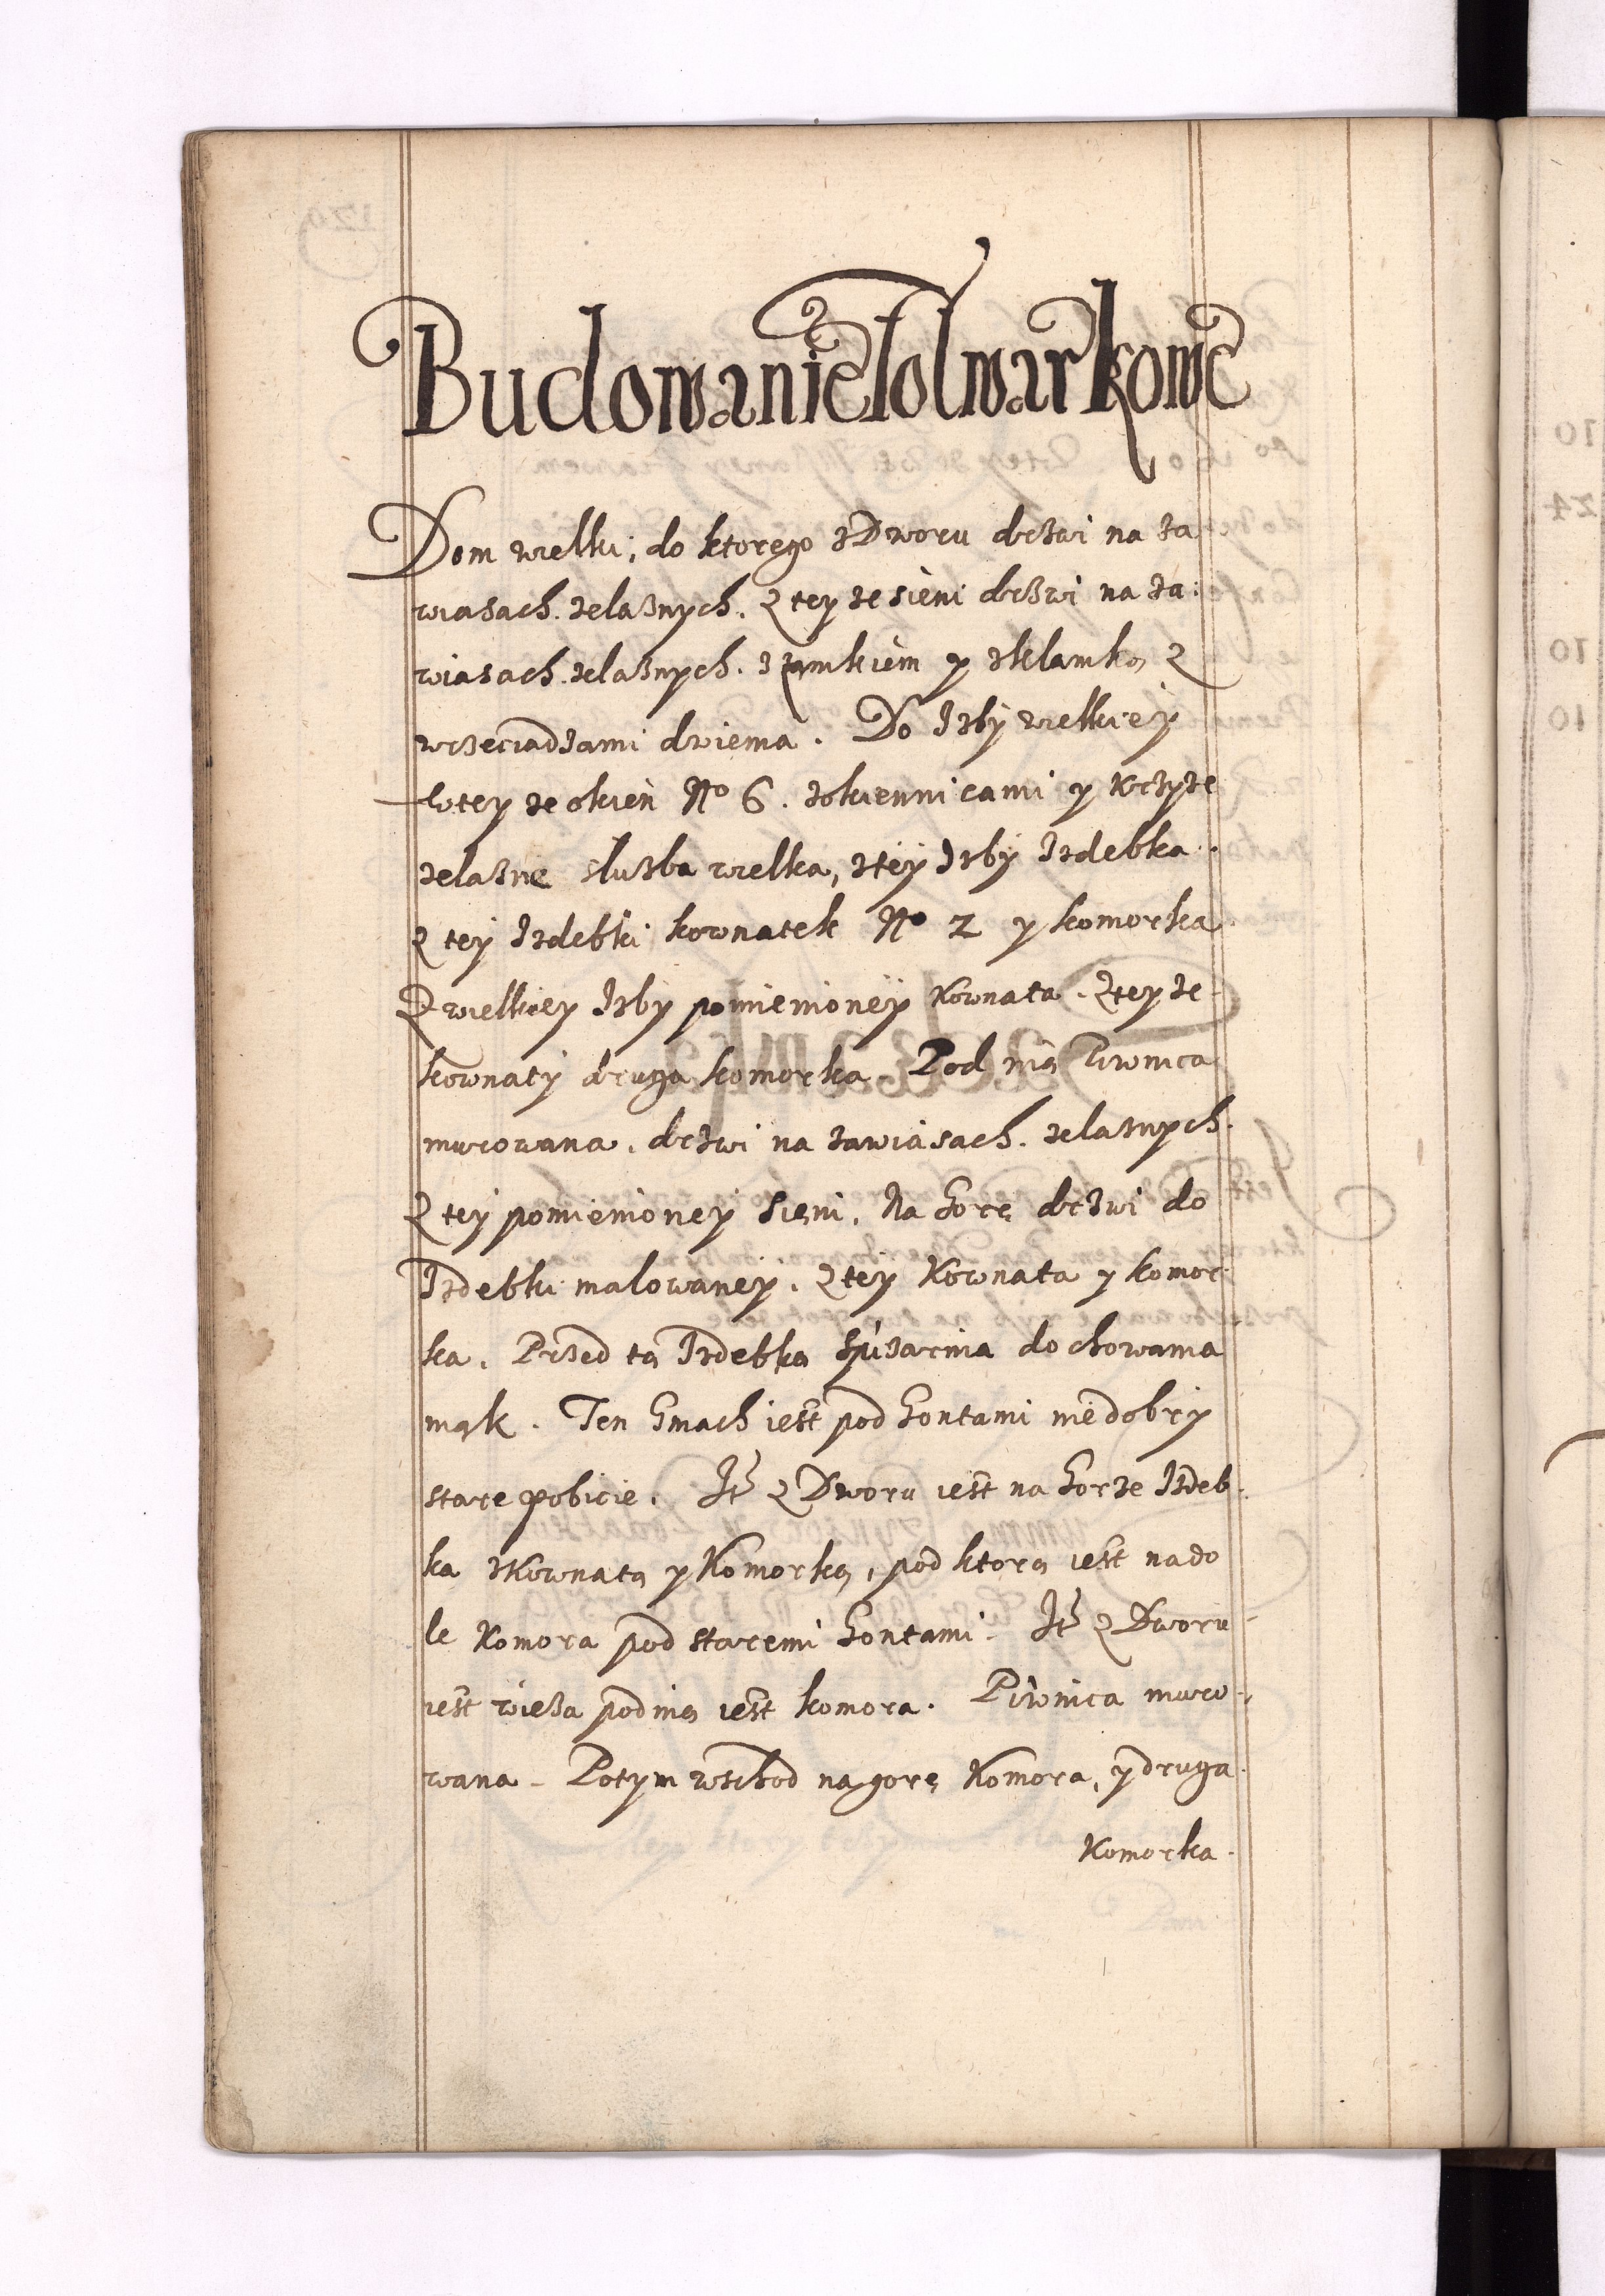 Budowanie folwarkowe
Dom wielki, do ktorego z Dworu drzwi na za
wiasach zelaznych. Z tey ze sieni drzwi na za:
wiasach zelaznych. z zamkiem y zklamką Z
wrzeciadzami dwiema. Do Izby wielkiey
w tey ze okien No 6. zokiennicami y Krzyze
zelazne służba wielka, z tey Izby Izdebka.
Z tey Izdebki kownatek No 2 y komorka
Z wielkiey Izby pomienioney Kownata. Z tey ze
kownaty druga komorka Pod nią Piwnica
murowana. drzwi na zawiasach. zelaznych.
Z tey pomienioney sieni. Na Gorę drzwi do
Izdebki malowaney. Z tey Kownata y komor
ka. Przed tą Izdebką spizarnia do chowania
mąk. Ten Gmach iest pod Gontami niedobry
stare pobicie. It Z Dworu iest na Gorze Izdeb
ka z Kownatą y Komorką, pod ktorą iest na do
le Komora pod staremi Gontami. It Z Dworu
iest wieza pod nią iest komora. Piwnica muro-
wana. Potym wschod na gorę Komora, y druga
Komorka.